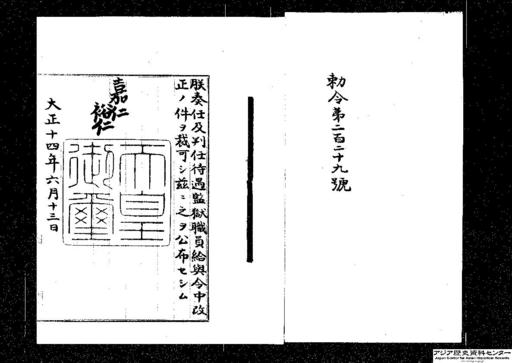 勅令第二百二十九號
朕奏任及判任待遇監獄職員給與令中改
正ノ件ヲ裁可シ茲ニ之ヲ公布セシム
嘉仁
裕仁
天皇
御璽
大正十四年六月十三日
アジア歴史資料センター
Japan Center for Asian Historical Records